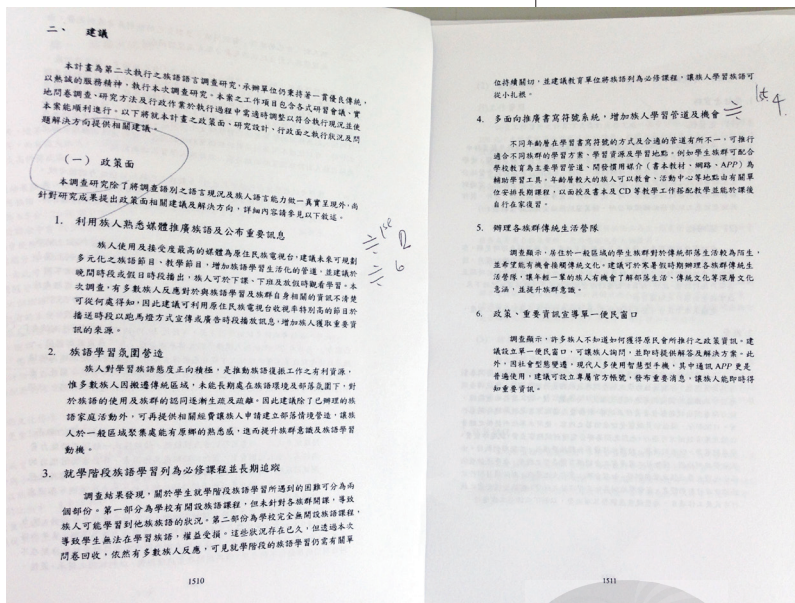 二、 建議
本計畫為第二次執行之族語語言調查研究，承辦單位仍秉持著一貫優良傳統，
以熱誠的服務精神，執行本次調查研究。本案之工作項目包含各式研習會議、實
地問卷調查、研究方法及行政作業於執行過程中需適時調整以符合執行現況並使
本案能順利進行。以下將就本計畫之政策面、研究設計、行政面之執行狀況及問
題解決方向提供相關建議。
（一） 政策面
本調查研究除了將調查語別之語言現況及族人語言能力做一真實呈現外，尚
針對研究成果提出政策面相關建議及解決方向，詳細內容請參見以下敘述。
1. 利用族人熟悉媒體推廣族語及公布重要訊息
族人使用及接受度最高的媒體為原住民族電視台，建議未來可規劃
多元化之族語節目、教學節目，增加族語學習生活化的管道，並建議於
晚間時段或假日時段播出，族人可於下課、下班及放假時觀看學習。本
次調查，有多數族人反應對於與族語學習及族群自身相關的資訊不清楚
可從何處得知，因此建議可利用原住民族電視台收視率特別高的節目於
播送時段以跑馬燈方式宣傳或廣告時段播放訊息，增加族人獲取重要資
訊的來源。
2. 族語學習氛圍營造
族人對學習族語態度正向積極，是推動族語復振工作之有利資源，
惟多數族人因搬遷傳統區域，未能長期處在族語環境及部落氛圍下，對
於族語的使用及族群的認同逐漸生疏及疏離。因此建議除了已辦理的族
語家庭活動外，可再提供相關經費讓族人申請建立部落情境營造，讓族
人於一般區域聚集處能有原鄉的熟悉感，進而提升族群意識及族語學習
動機。
3. 就學階段族語學習列為必修課程並長期追蹤
調查結果發現，關於學生就學階段族語學習所遇到的困難可分為兩
個部份。第一部分為學校有開設族語課程，但未針對各族群開課，導致
族人可能學習到他族族語的狀況。第二部份為學校完全無開設族語課程，
導致學生無法在學習族語，權益受損。這些狀況存在已久，但透過本次
問卷回收，依然有多數族人反應，可見就學階段的族語學習仍需有關單
1510
位持續關切，並建議教育單位將族語列為必修課程，讓族人學習族語可
從小扎根。
4. 多面向推廣書寫符號系統，增加族人學習管道及機會
不同年齡層在學習書寫符號的方式及合適的管道有所不一，可推行
適合不同族群的學習方案、學習資源及學習地點。例如學生族群可配合
學校教育為主要學習管道、開發慣用媒介（書本教材、網路、APP）為
輔助學習工具，年齡層較大的族人可以教會、活動中心等地點由有關單
位安排長期課程，以面授及書本及 CD 等教學工作搭配教學並能於課後
自行在家復習。
5. 辦理各族群傳統生活營隊
調查顯示，居住於一般區域的學生族群對於傳統部落生活較為陌生，
並希望能有機會接觸傳統文化。建議可於寒暑假時期辦理各族群傳統生
活營隊，讓年輕一輩的族人有機會了解部落生活、傳統文化等深層文化
意涵，並提升族群意識。
6. 政策、重要資訊宣導單一便民窗口
調查顯示，許多族人不知道如何獲得原民會所推行之政策資訊。建
議設立單一便民窗口，可讓族人詢問，並即時提供解答及解決方案。此
外，因社會型態變遷，現代人多使用智慧型手機，其中通訊 APP 更是
普遍使用，建議可設立專屬官方帳號，發布重要消息，讓族人能即時得
知重要資訊。
1511